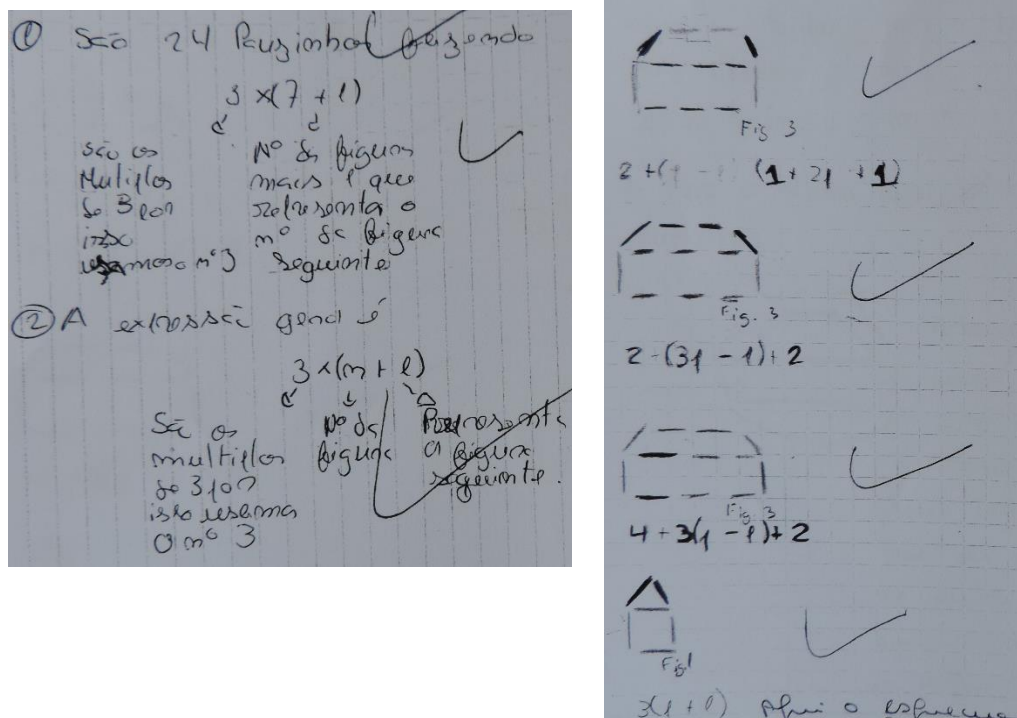 ① São 24 Pauzinhos fazendo
3 x(7 + 1)
são os
Multiplos
de 3 por
isso
usamos o nº 3
Nº da figura
mais 1 que
representa o
nº da figura
seguinte
② A expressão geral é
3 x(m + 1)
São os
multiplos
de 3 por
isso usama
O nº 3
Nº da
figura
Representa
a figura
seguinte.
Fig 3
2 + (1 + 21 + 1)
Fig. 3
2 - (31 - 1) + 2
Fig 3
4 + 3(1 - 1) + 2
Fig 1
3(1 + 1) o esquema